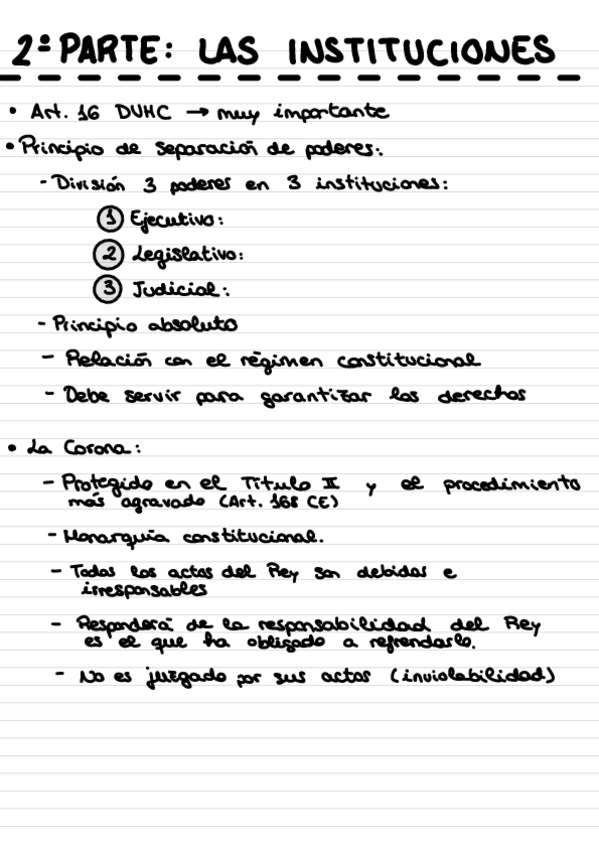 2ª PARTE: LAS INSTITUCIONES
• Art. 16 DUHC → muy importante
• Principio de separación de poderes:
- División 3 poderes en 3 instituciones:
1 Ejecutivo:
2 Legislativo:
3 Judicial:
- Principio absoluto
- Relación con el régimen constitucional
- Debe servir para garantizar los derechos
• La Corona:
- Protegido en el Título II y el procedimiento
más agravado (Art. 168 CE)
- Monarquía constitucional.
- Todos los actos del Rey son debidos e
irresponsables
- Responderá de la responsabilidad del Rey
es el que ha obligado a refrendarlo.
- No es juzgado por sus actos (inviolabilidad)